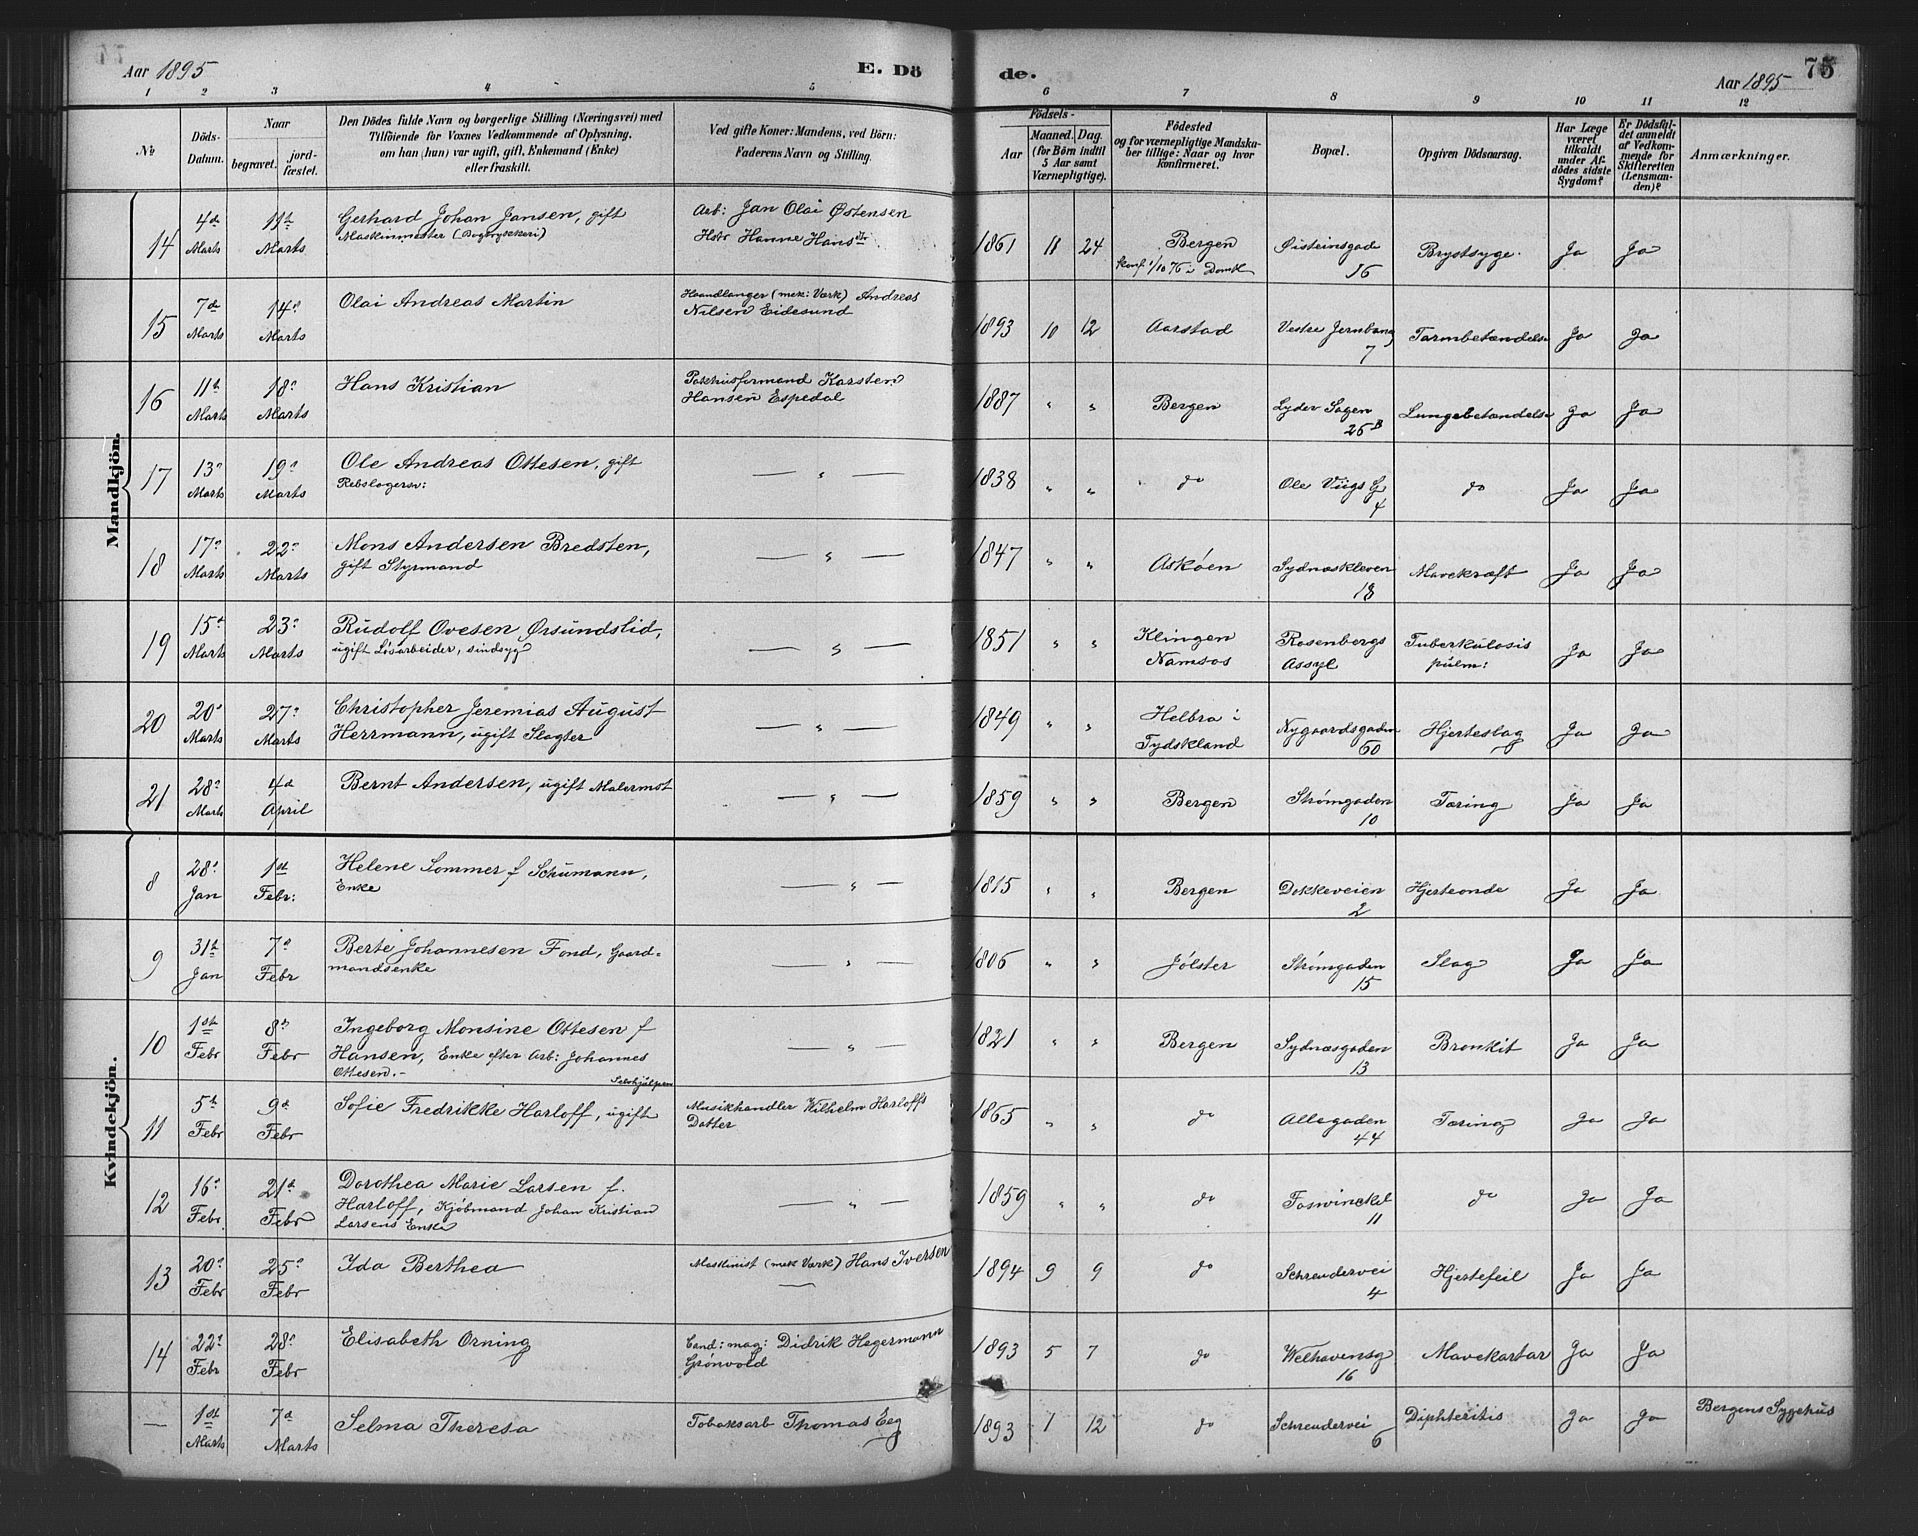 Aar 1895
E. Dö
de.
Aar 1895
75
1 2 3 4 5 6 7 8 9 10 11 12
No
Döds-Datum.
Naar
begravet.
jord-fæstet.
Den Dödes fulde Navn og borgerlige Stilling (Næringsvei) med
Tilföiende for Voxnes Vedkommende af Oplysning,
om han (hun) var ugift, gift, Enkemand (Enke)
eller fraskilt.
Ved gifte Koner: Mandens, ved Börn:
Faderens Navn og Stilling.
Födsels-
Aar
Maaned. Dag.
(for Börn indtil
5 Aar samt
Værnepligtige).
Födested
og for værnepligtige Mandska-
ber tillige: Naar og hvor
konfirmeret.
Bopæl.
Opgiven Dödsaarsag.
Har Læge
været
tilkaldt
under Af-
dödes sidste
Sygdom?
Er Dödsfal-
det anmeldt
af Vedkom-
mende for
Skifteretten
(Lensman-
den)?
Anmærkninger.
Mandkjön.
14 4de Marts 11te Marts Gerhard Johan Jansen, gift
Maskinmester (Bogtrykkeri)
Arb: Jan Olai Østensen
Hstr Hanne Hansdtr
1861 11 24 Bergen
konf 1/10 76 i Domk
Øisteinsgade 16 Brystsyge. Ja Ja
15 7de Marts 14de Marts Olai Andreas Martin
Haandlanger (mek: Værk) Andreas
Nilsen Eidesund
1893 10 12 Aarstad Vestre Jernbaneg 7 Tarmbetændelse Ja Ja
16 11te Marts 18de Marts Hans Kristian
Pakhusformand Karsten
Hansen Espedal
1887 " " Bergen Lyder Sagen 26B Lungebetændelse Ja Ja
17 13de Marts 19de Marts Ole Andreas Ottesen, gift
Rebslagersv:
— " — 1838 " " do Ole Viigs G 4 do Ja Ja
18 17de Marts 22de Marts Mons Andersen Bredsten,
gift Styrmand
— " — 1847 " " Askøen Sydnæskleven 18 Mavekræft Ja Ja
19 15de Marts 23de Marts Rudolf Ovesen Ørsundslid,
ugift Løsarbeider, sindsyg
— " — 1851 " " Klingen
Namsos
Rosenbergs
Assyl
Tuberkulosis
pulm:
Ja Ja
20 20de Marts 27de Marts Christopher Jeremias August
Herrmann, ugift Slagter
— " — 1849 " " Helbra i
Tydskland
Nygaardsgaden 60 Hjerteslag Ja Ja
21 28de Marts 4de April Bernt Andersen, ugift Malermst
— " — 1859 " " Bergen Strømgaden 10 Tæring Ja Ja
Kvindekjön.
8 28de Jan 1st Febr: Helene Sommer f Schumann,
Enke
— " — 1815 " " Bergen Dokkeveien 2 Hjerteonde Ja Ja
9 31te Jan 7de Febr Berte Johannesen Fond, Gaard-
mandsenke
— " — 1806 " " Jølster Strømgaden 15 Slag Ja Ja
10 1st Febr 8de Febr Ingeborg Monsine Ottesen f
Hansen, Enke efter Arb: Johannes
Ottesen.-
— " — 1821 " " Bergen Sydnæsgaden 13 Bronkit Ja Ja
Selvhjælpen
11 5te Febr 9de Febr Sofie Fredrikke Harloff, ugift
Musikhandler Wilhelm Harloffs
Datter
1865 " " do Allegaden 44 Tæring Ja Ja
12 16de Febr 21de Febr Dorothea Marie Larsen f.
Harloff, Kjøbmand Johan Kristian
Larsens Enke
— " — 1859 " " do Foswinckel 11 do Ja Ja
13 20de Febr 25de Febr Ida Berthea
Maskinist (mek Værk) Hans Iversen
—
1894 9 9 do Schreudervei 4 Hjertefeil Ja Ja
14 22de Febr 28de Febr Elisabeth Orning
Cand: mag: Didrik Hegermann
Grønvold
1893 5 7 do Welhavensg 16 Mavekartar Ja Ja
— 1st Marts 7de Marts Selma Theresa
Tobaksarb Thomas Eeg
1893 1 12 do Schreudervei 6 Diphteritis Ja Ja Bergens Sygehus